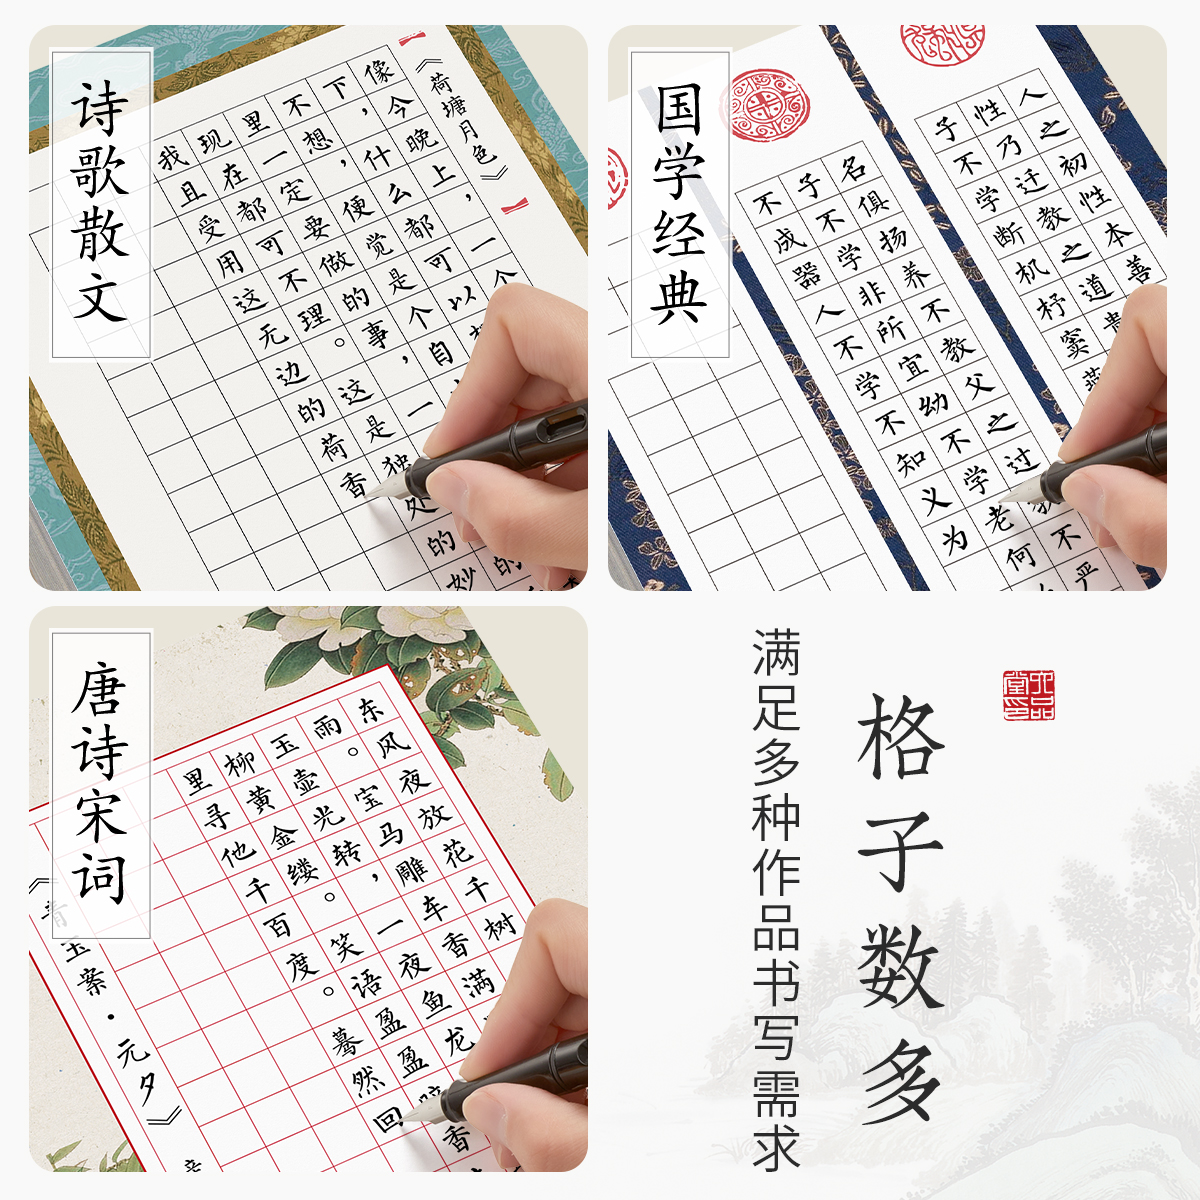 诗歌散文
《荷塘月色》
像今晚上，一个
下，什么都可以
不想，便觉是个自
里一定要做的事，一
现在都可不理。这是独处的妙
我且受用这无边的荷香
国学经典
人之初性本善
性乃迁教之道贵
子不学断机杼窦燕
名俱扬养不教父之过教不严
子不学非所宜幼不学老何
不成器人不学不知义为
唐诗宋词
东风夜放花千树
雨。宝马雕车香满
玉壶光转，一夜鱼龙
柳黄金缕。笑语盈盈暗香
里寻他千百度。蓦然回
《青玉案·元夕》
格子数多
满足多种作品书写需求